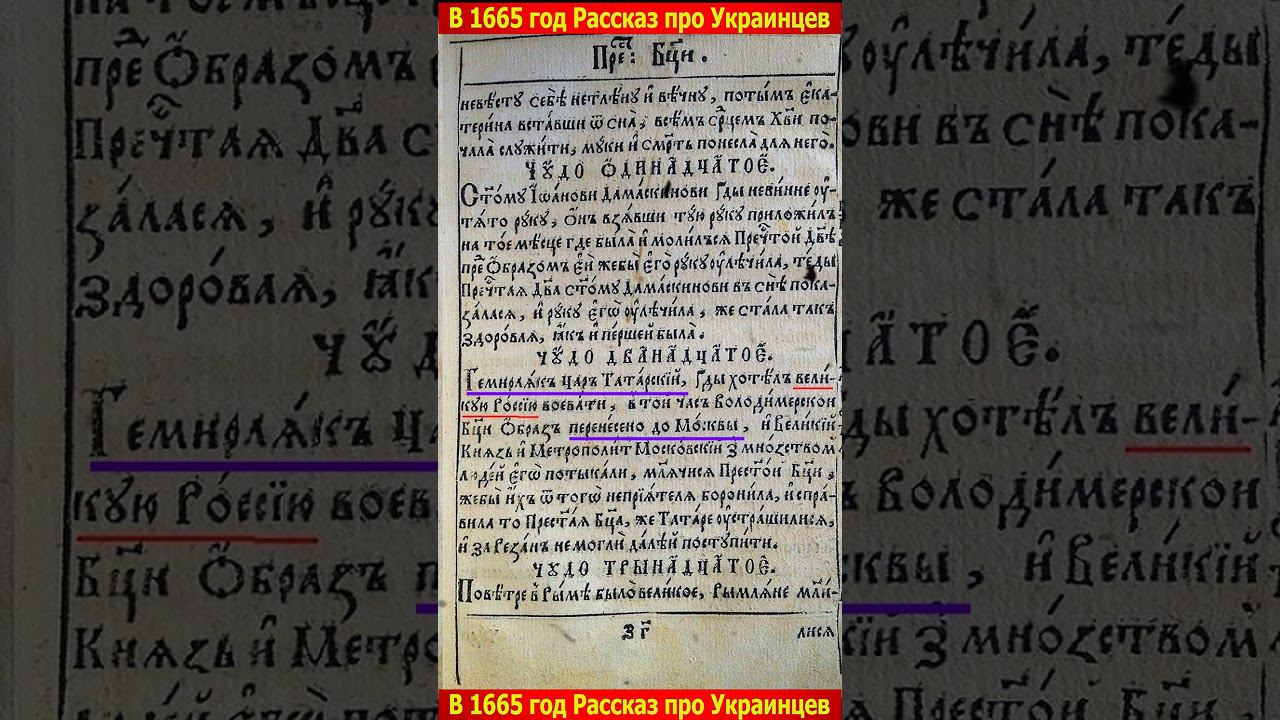 В 1665 год Рассказ про Украинцев
Прес҃: Бц҃и.
невѣсту себѣ нетлѣну и вѣчну, потымъ Єка-
терина вставши ѿ сна, всѣмъ ср҃цемъ Хв҃и по-
чала служити, муки и см҃рть понесла для него.
ЧУДО ѠДИНАДЦАТОЕ.
Ст҃ому Іѡанови Дамаскинови гды невинне оу-
тято руку, Ѻнъ взявши тую руку приложилъ
на тоє мѣсце где была и молилъся Преч҃той Дв҃ѣ
пре Ѻбразомъ Єй жебы єго руку оулѣчила, теды
Преч҃тая Дв҃а ст҃ому Дамаскинови въ снѣ пока-
залася, и руку єгѡ оулѣчила, же стала такъ
здоровая, ꙗкъ и першей была.
ЧУДО ДВАНАДЦАТОЕ.
Темирлякъ Царъ Татарскїй, гды хотѣлъ вели-
кую Россїю воевати, в той часъ Володимерской
Бц҃и Ѻбразъ перенесено до Москвы, и Великїй
Князь и Метрополит Московскїй з множеством
людей єгѡ потыкали, мл҃ячися Прест҃ой Бц҃и,
жебы ихъ ѿ тогѡ непріятеля боронила, и спра-
вила то Прест҃ая Бц҃а, же Татаре оустрашилися,
и за Резанъ не могли далѣй поступити.
ЧУДО ТРЫНАДЦАТОЕ.
Повѣтре в Рымѣ было великое, Рымляне мл҃и-
зг҃
лися
В 1665 год Рассказ про Украинцев